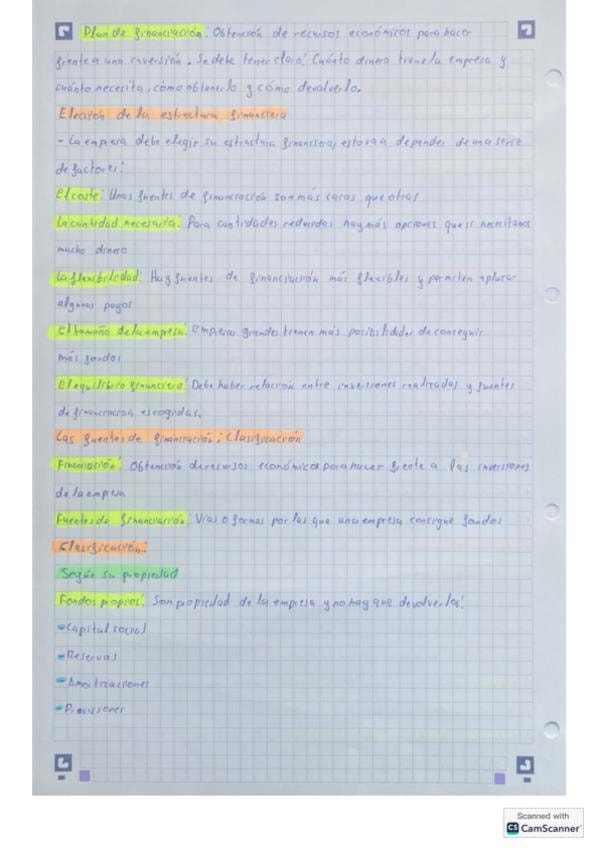 Plan de financiación: Obtención de recursos económicos para hacer
frente a una inversión. Se debe tener claro: Cuánto dinero tiene la empresa y
cuánto necesita, cómo obtenerlo y cómo devolverlo.
Elección de la estructura financiera
- La empresa debe elegir su estructura financiera, esto va a depender de una serie
de factores:
El coste: Unas fuentes de financiación son más caras que otras
La cantidad necesaria: Para cantidades reducidas hay más opciones que si necesitamos
mucho dinero
La flexibilidad: Hay fuentes de financiación más flexibles y permiten aplazar
algunos pagos
El tamaño de la empresa: Empresas grandes tienen más posibilidades de conseguir
más fondos
El equilibrio financiero: Debe haber relación entre inversiones realizadas y fuentes
de financiación escogidas.
Las fuentes de financiación: Clasificación
Financiación: Obtención de recursos económicos para hacer frente a las inversiones
de la empresa
Fuentes de financiación: Vías o formas por las que una empresa consigue fondos
Clasificación:
Según su propiedad
Fondos propios: Son propiedad de la empresa y no hay que devolverlos:
-Capital social
-Reservas
-Amortizaciones
-Provisiones
Scanned with
CS CamScanner